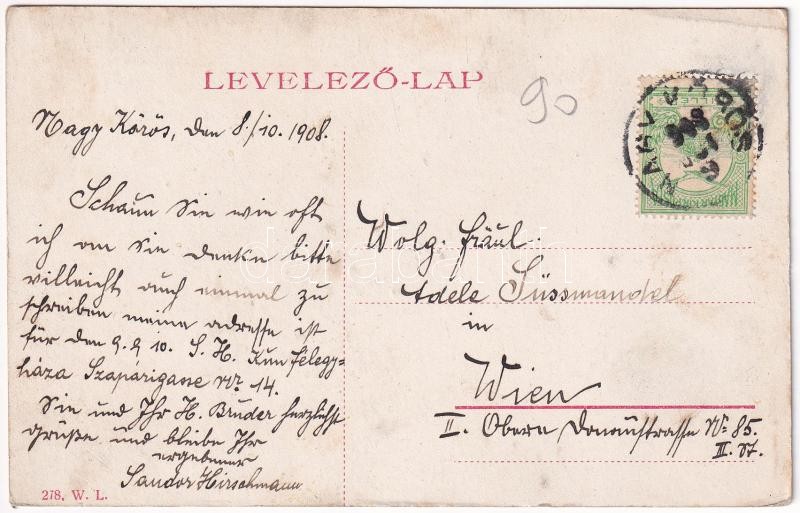 LEVELEZŐ-LAP
90
Nagy Körös, den 8./10. 1908.
Schaun Sie wie oft
ich an Sie denke bitte
villeicht auch einmal zu
schreiben meine adresse ist
für den 9. & 10. S. H. Kun félegy-
háza Szaparigasse Nr. 14.
Sie und Ihr H. Bruder herzlichst
grüße und bleibe Ihr
ergebener
Sandor Hirschmann
Wolg. Fräul.
Adele Süssmandel
in
Wien
II. Obere Donaustrasse Nr. 85.
II. St.
278. W. L.